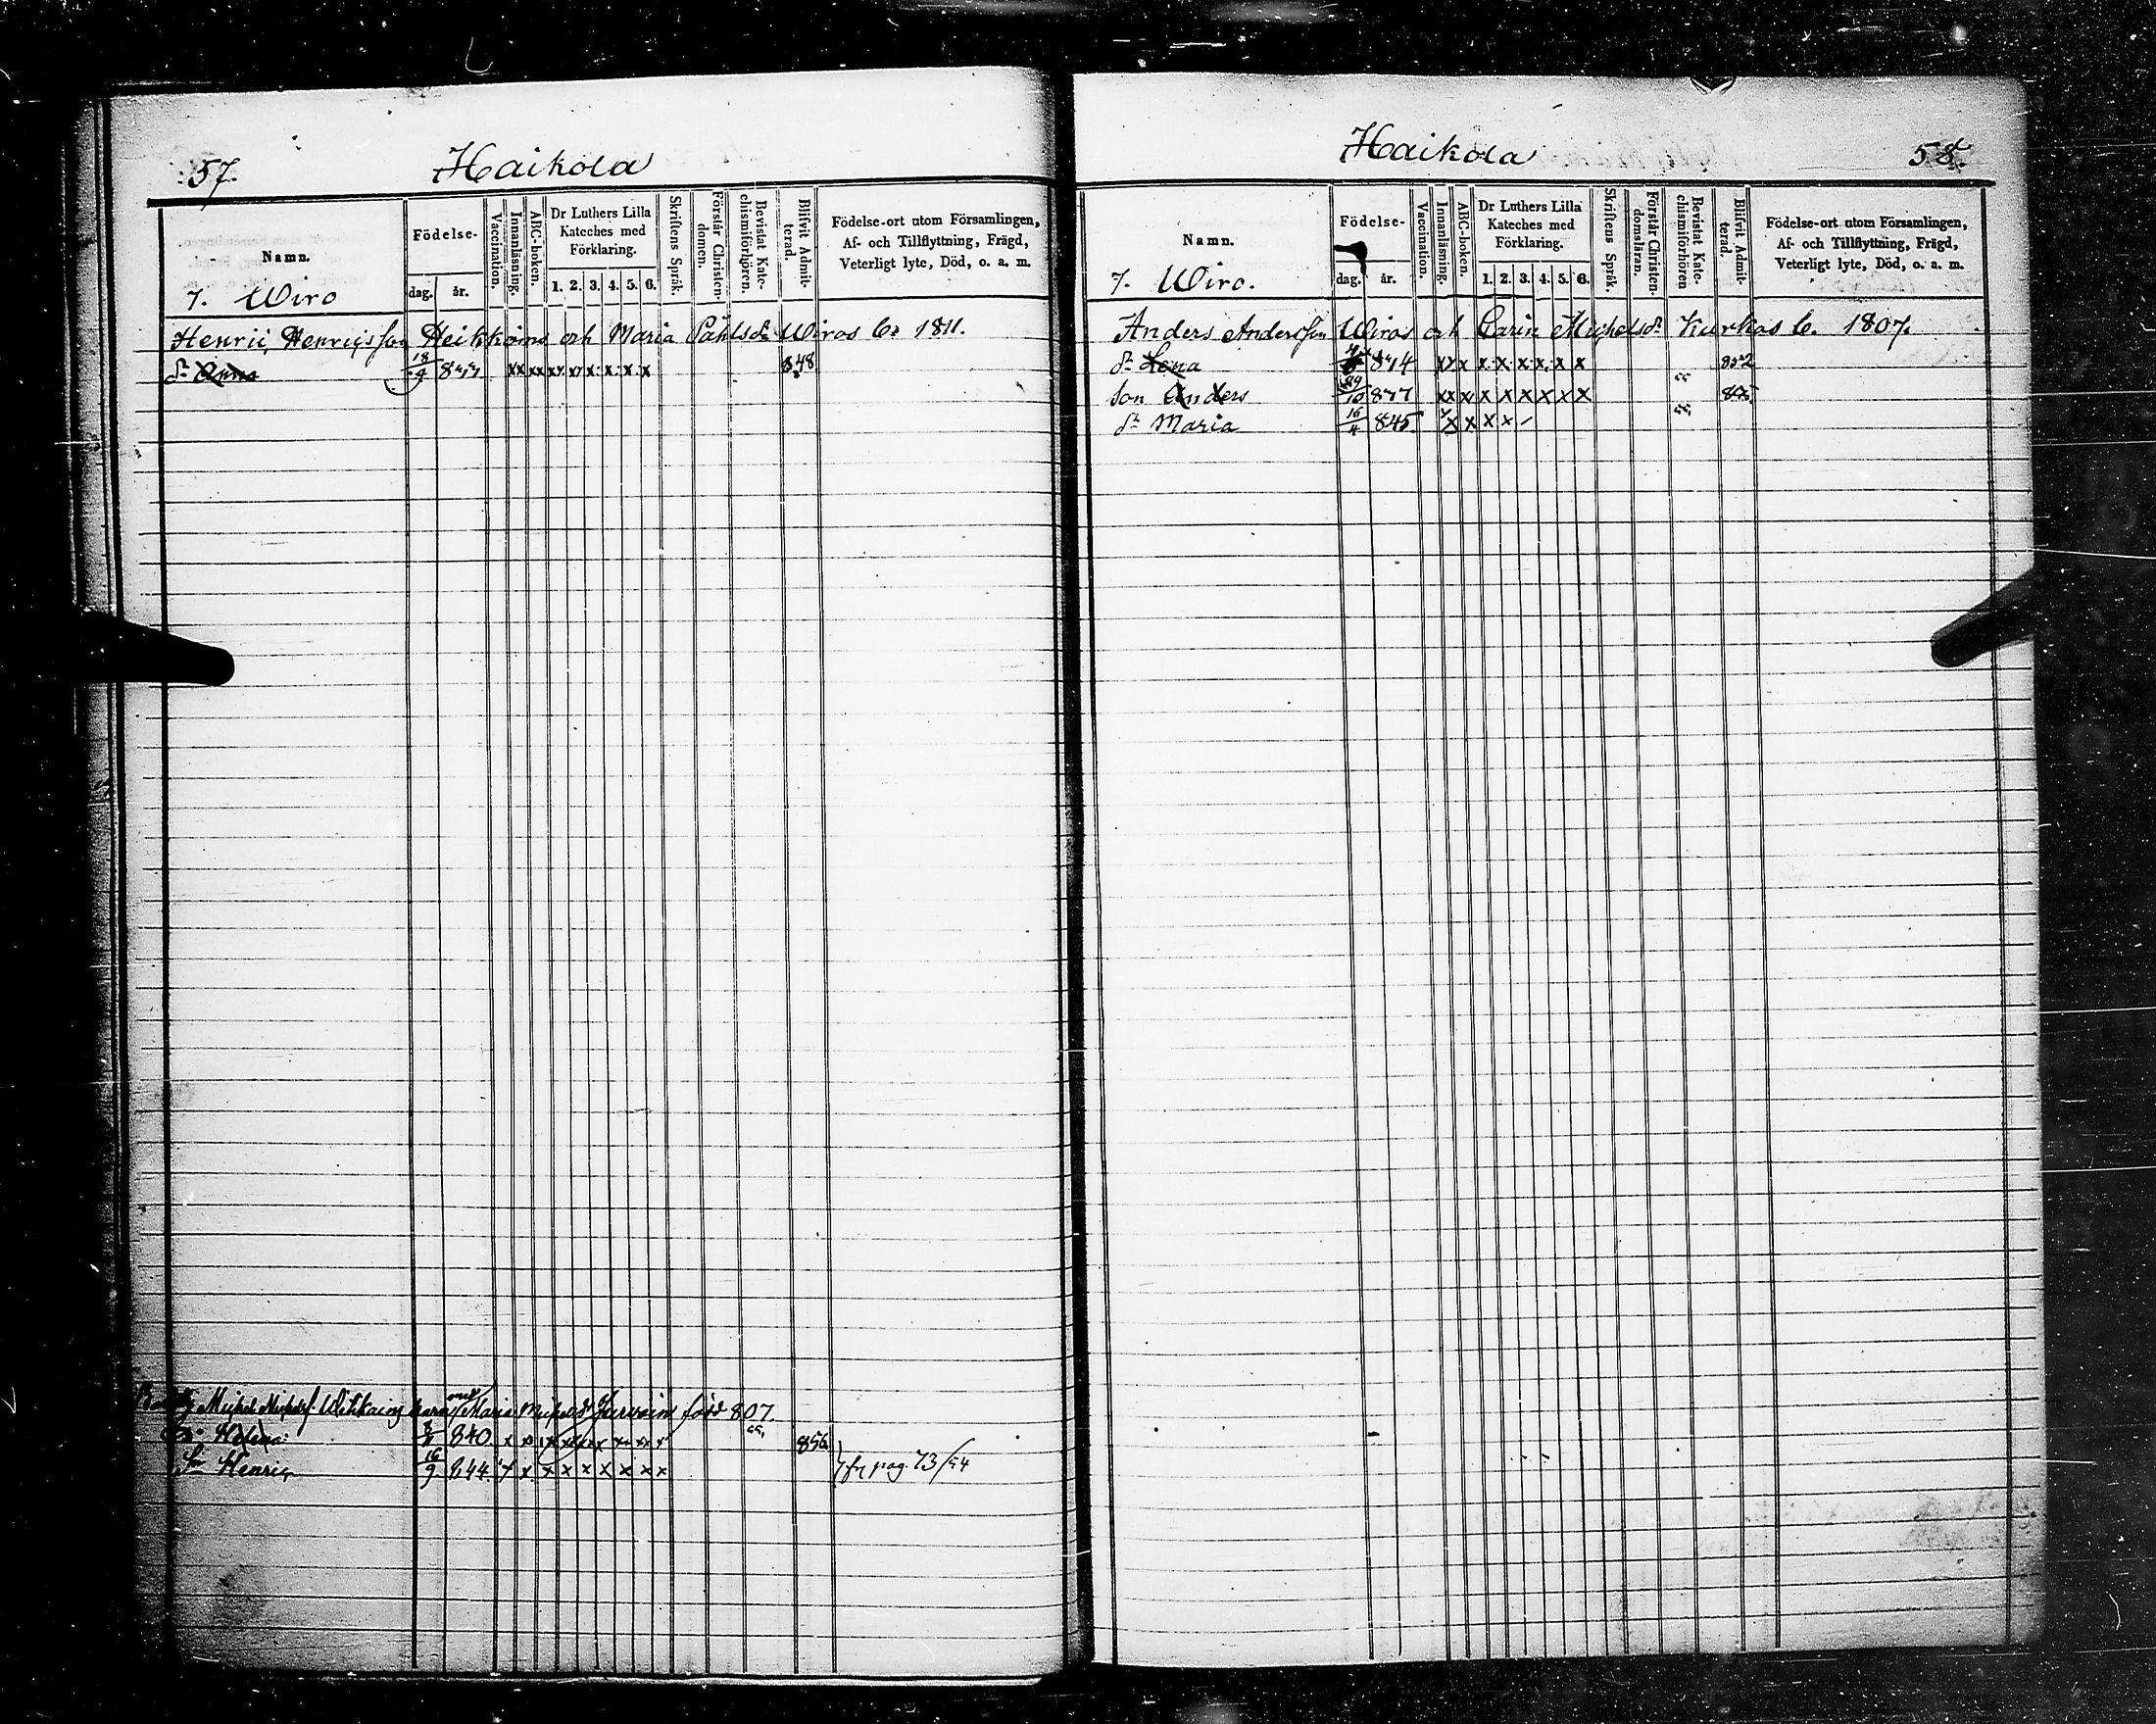 57.
Haikola
Namn.
7. Wiro
Födelse-
dag.
år.
Vaccination.
Innanläsning.
ABC-boken.
Dr Luthers Lilla
Kateches med
Förklaring.
1. 2. 3. 4. 5. 6.
Skriftens Språk.
Förstår Christen-
domen.
Bevistat Kate-
chismiförhören.
Blifvit Admit-
terad.
Födelse-ort utom Församlingen,
Af- och Tillflyttning, Frägd,
Veterligt lyte, Död, o. a. m.
Henric Henricsson Heikkoins och Maria Påhlsdr Wiros C. 1811.
dr Anna 18/9 xx xx xx xx x x x x 848
Michel Wehkaing Maria Michelsdr född 807.
Helena 840 x x x x x x x x x 856
Sn Henric 16/9 844 x x x x x x x x x fr pag. 73/54
Haikola
58.
Namn.
7. Wiro.
Födelse-
dag.
år.
Vaccination.
Innanläsning.
ABC-boken.
Dr Luthers Lilla
Kateches med
Förklaring.
1. 2. 3. 4. 5. 6.
Skriftens Språk.
Förstår Christen-
domsläran.
Bevistat Kate-
chismiförhören
Blifvit Admit-
terad.
Födelse-ort utom Församlingen,
Af- och Tillflyttning, Frägd,
Veterligt lyte, Död, o. a. m.
Anders Andersson Wiros och Carin Michelsdr Kurkos C. 1807.
dr Lena xx x x x x x x x 852
son Anders 29/10 xx x x x x x x x
dr Maria 16/4 845 x x x x